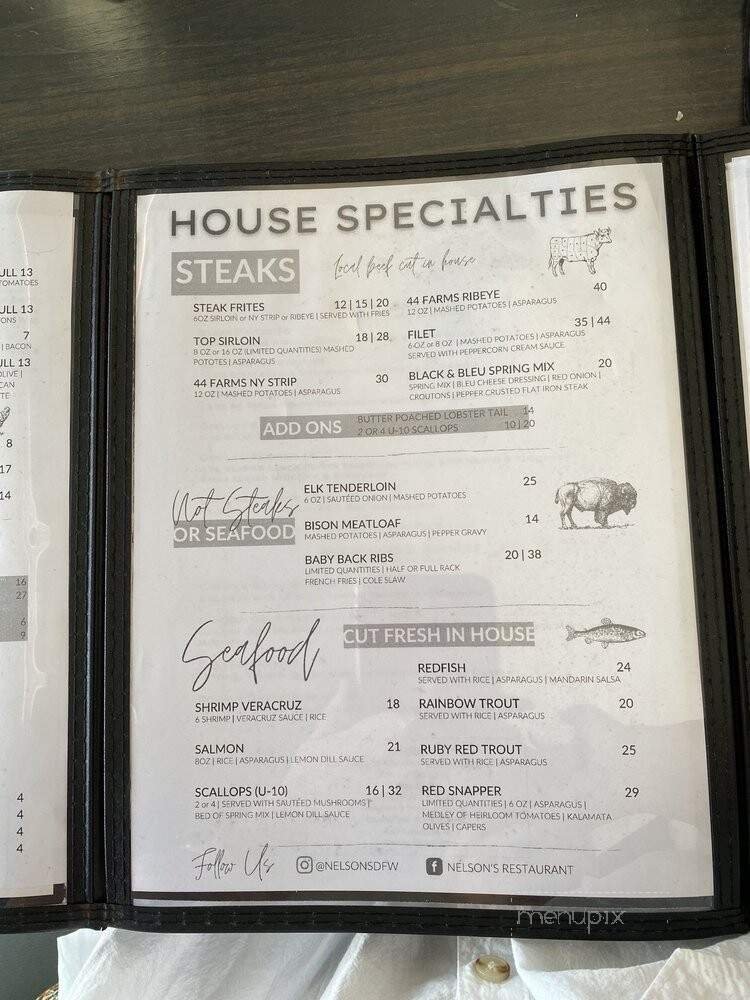 HOUSE SPECIALTIES
STEAKS
Local beef cut in house
STEAK FRITES 12 | 15 | 20
6OZ SIRLOIN or NY STRIP or RIBEYE | SERVED WITH FRIES
TOP SIRLOIN 18 | 28
8 OZ or 16 OZ (LIMITED QUANTITIES) MASHED
POTOTES | ASPARAGUS
44 FARMS NY STRIP 30
12 OZ | MASHED POTATOES | ASPARAGUS
44 FARMS RIBEYE 40
12 OZ | MASHED POTATOES | ASPARAGUS
FILET 35 | 44
6 OZ or 8 OZ | MASHED POTATOES | ASPARAGUS
SERVED WITH PEPPERCORN CREAM SAUCE
BLACK & BLEU SPRING MIX 20
SPRING MIX | BLEU CHEESE DRESSING | RED ONION |
CROUTONS | PEPPER CRUSTED FLAT IRON STEAK
ADD ONS
BUTTER POACHED LOBSTER TAIL 14
2 OR 4 U-10 SCALLOPS 10 | 20
Not Steaks
OR SEAFOOD
ELK TENDERLOIN 25
6 OZ | SAUTÉED ONION | MASHED POTATOES
BISON MEATLOAF 14
MASHED POTATOES | ASPARAGUS | PEPPER GRAVY
BABY BACK RIBS 20 | 38
LIMITED QUANTITIES | HALF OR FULL RACK
FRENCH FRIES | COLE SLAW
Seafood
CUT FRESH IN HOUSE
SHRIMP VERACRUZ 18
6 SHRIMP | VERACRUZ SAUCE | RICE
SALMON 21
8OZ | RICE | ASPARAGUS | LEMON DILL SAUCE
SCALLOPS (U-10) 16 | 32
2 or 4 | SERVED WITH SAUTÉED MUSHROOMS |
BED OF SPRING MIX | LEMON DILL SAUCE
REDFISH 24
SERVED WITH RICE | ASPARAGUS | MANDARIN SALSA
RAINBOW TROUT 20
SERVED WITH RICE | ASPARAGUS
RUBY RED TROUT 25
SERVED WITH RICE | ASPARAGUS
RED SNAPPER 29
LIMITED QUANTITIES | 6 OZ | ASPARAGUS |
MEDLEY OF HEIRLOOM TOMATOES | KALAMATA
OLIVES | CAPERS
Follow Us @NELSONSDFW NELSON'S RESTAURANT
13
13
7
| BACON
13
8
17
14
16
27
6
9
4
4
4
4
menupix